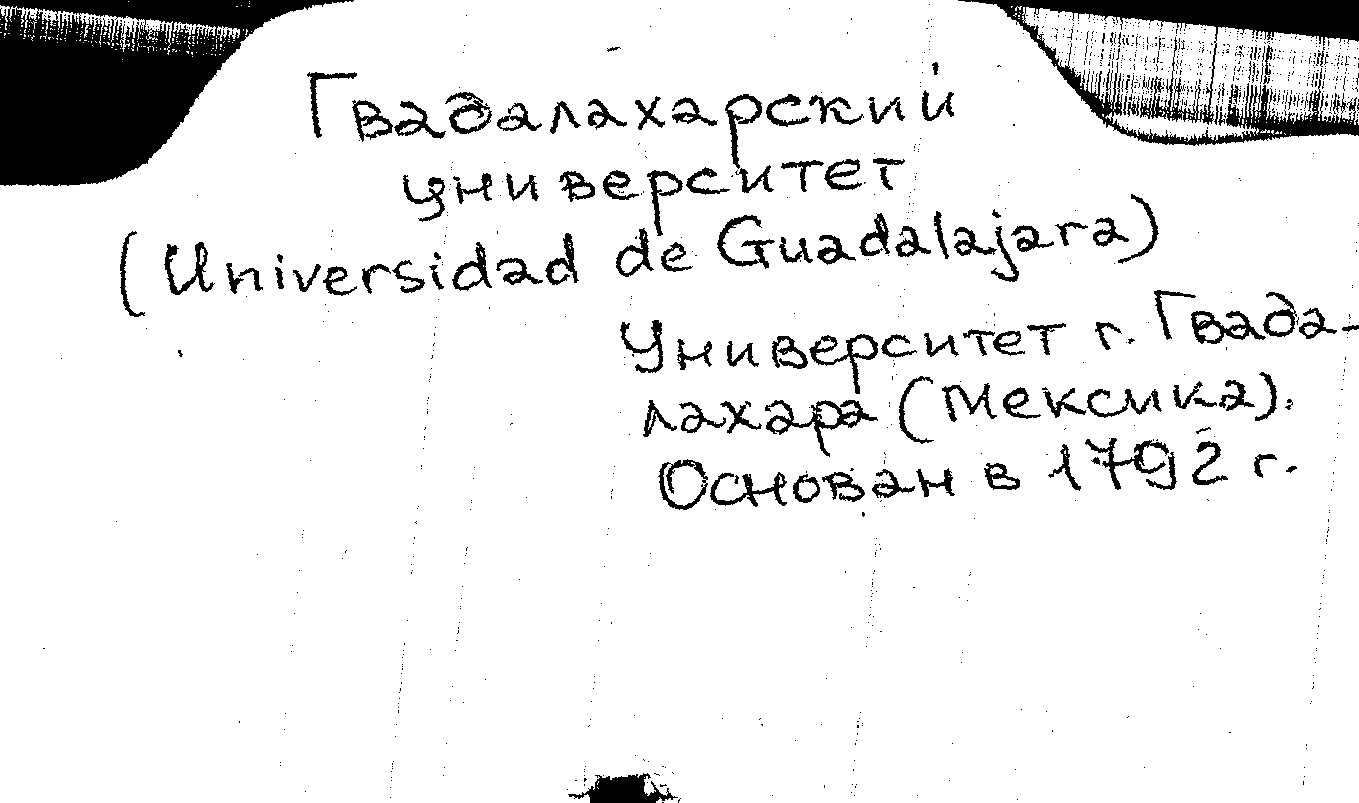 Гвадалахарский
университет
(Universidad de Guadalajara)
Университет г. Гвада-
лахара (Мексика).
Основан в 1792 г.